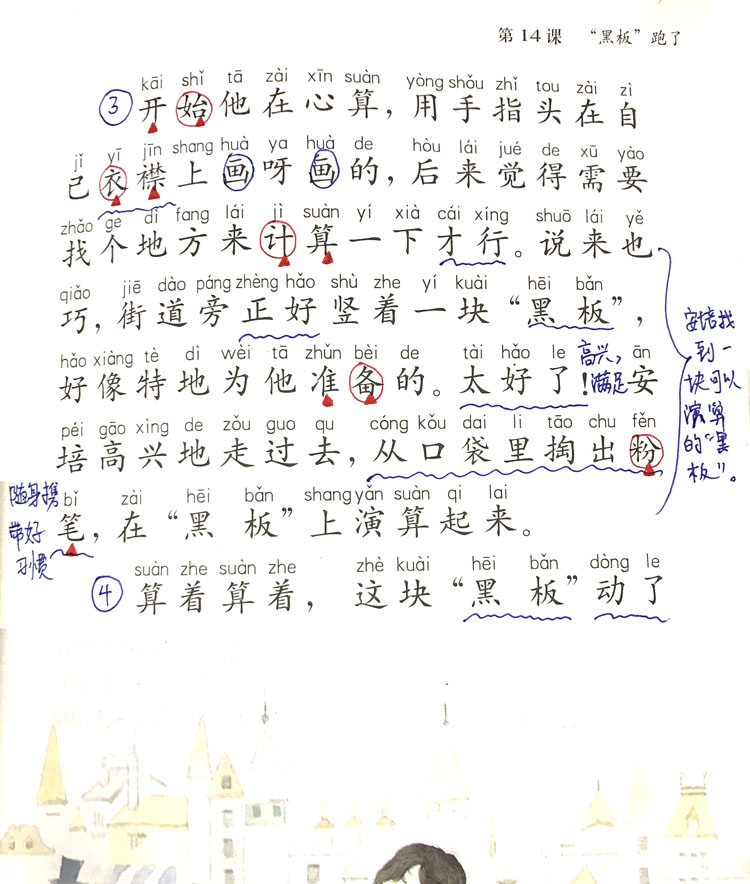 第14课 “黑板”跑了
kāi shǐ tā zài xīn suàn yòng shǒu zhǐ tou zài zì
③开始他在心算，用手指头在自
jǐ yī jīn shang huà ya huà de hòu lái jué de xū yào
己衣襟上画呀画的，后来觉得需要
zhǎo ge dì fang lái jì suàn yí xià cái xíng shuō lái yě
找个地方来计算一下才行。说来也
qiǎo jiē dào páng zhèng hǎo shù zhe yí kuài hēi bǎn
巧，街道旁正好竖着一块“黑板”，
hǎo xiàng tè dì wèi tā zhǔn bèi de tài hǎo le ān
好像特地为他准备的。太好了！安
高兴，
满足
péi gāo xìng de zǒu guo qu cóng kǒu dai li tāo chu fěn
培高兴地走过去，从口袋里掏出粉
bǐ zài hēi bǎn shang yǎn suàn qi lai
笔，在“黑板”上演算起来。
随身携
带好
习惯
安培找
到一
块可以
演算
的“黑
板”。
suàn zhe suàn zhe zhè kuài hēi bǎn dòng le
④算着算着，这块“黑板”动了